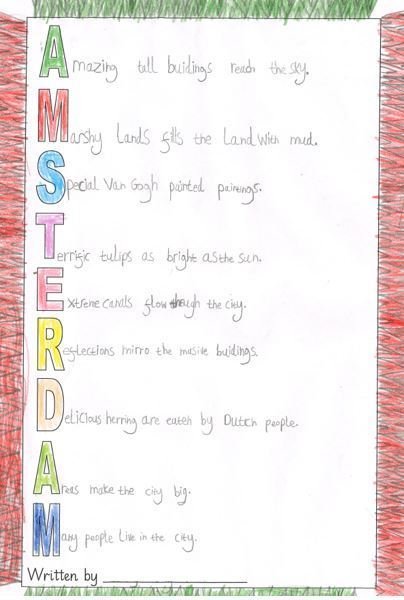 Amazing tall buidings reach the sky.
Marshy Lands fills the Land with mud.
Special Van Gogh painted paintings.
Terrific tulips as bright as the sun.
Extreme canals flow though the city.
Reflections mirro the masive buidings.
Delicious herring are eaten by Dutch people.
Areas make the city big.
Many people Live in the city.
Written by